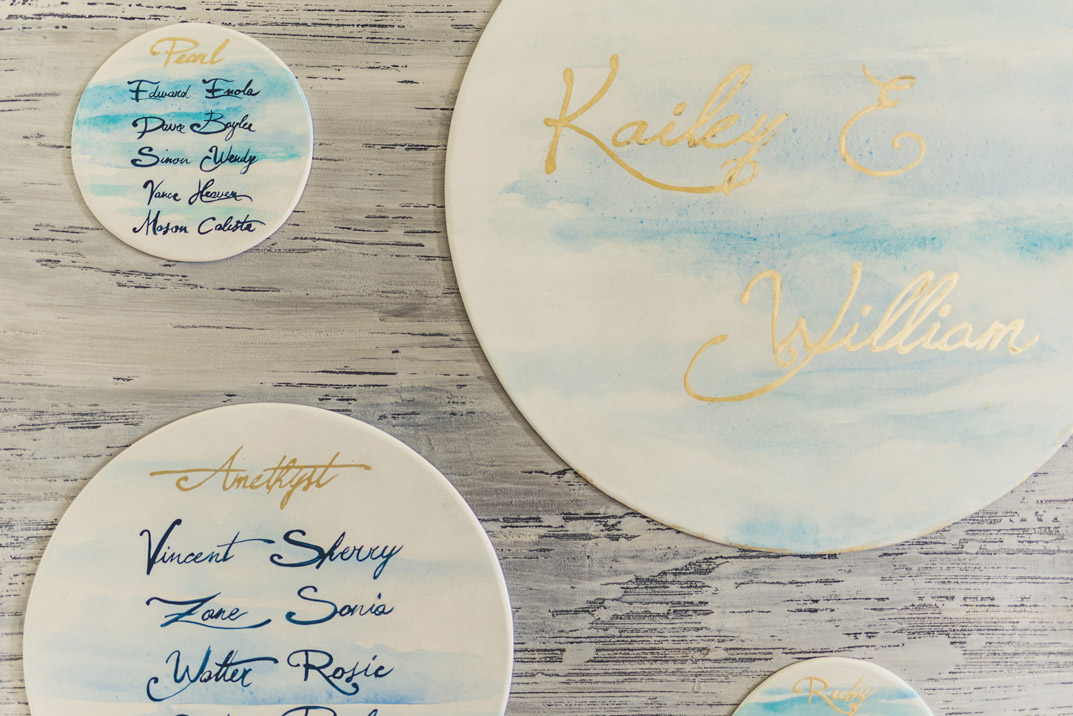 Pearl
Edward Enola
Dave Baylee
Simon Wendy
Vance Heaven
Mason Calista
Kailey E
William
Amethyst
Vincent Sherry
Zane Sonia
Walter Rosie
Ruby